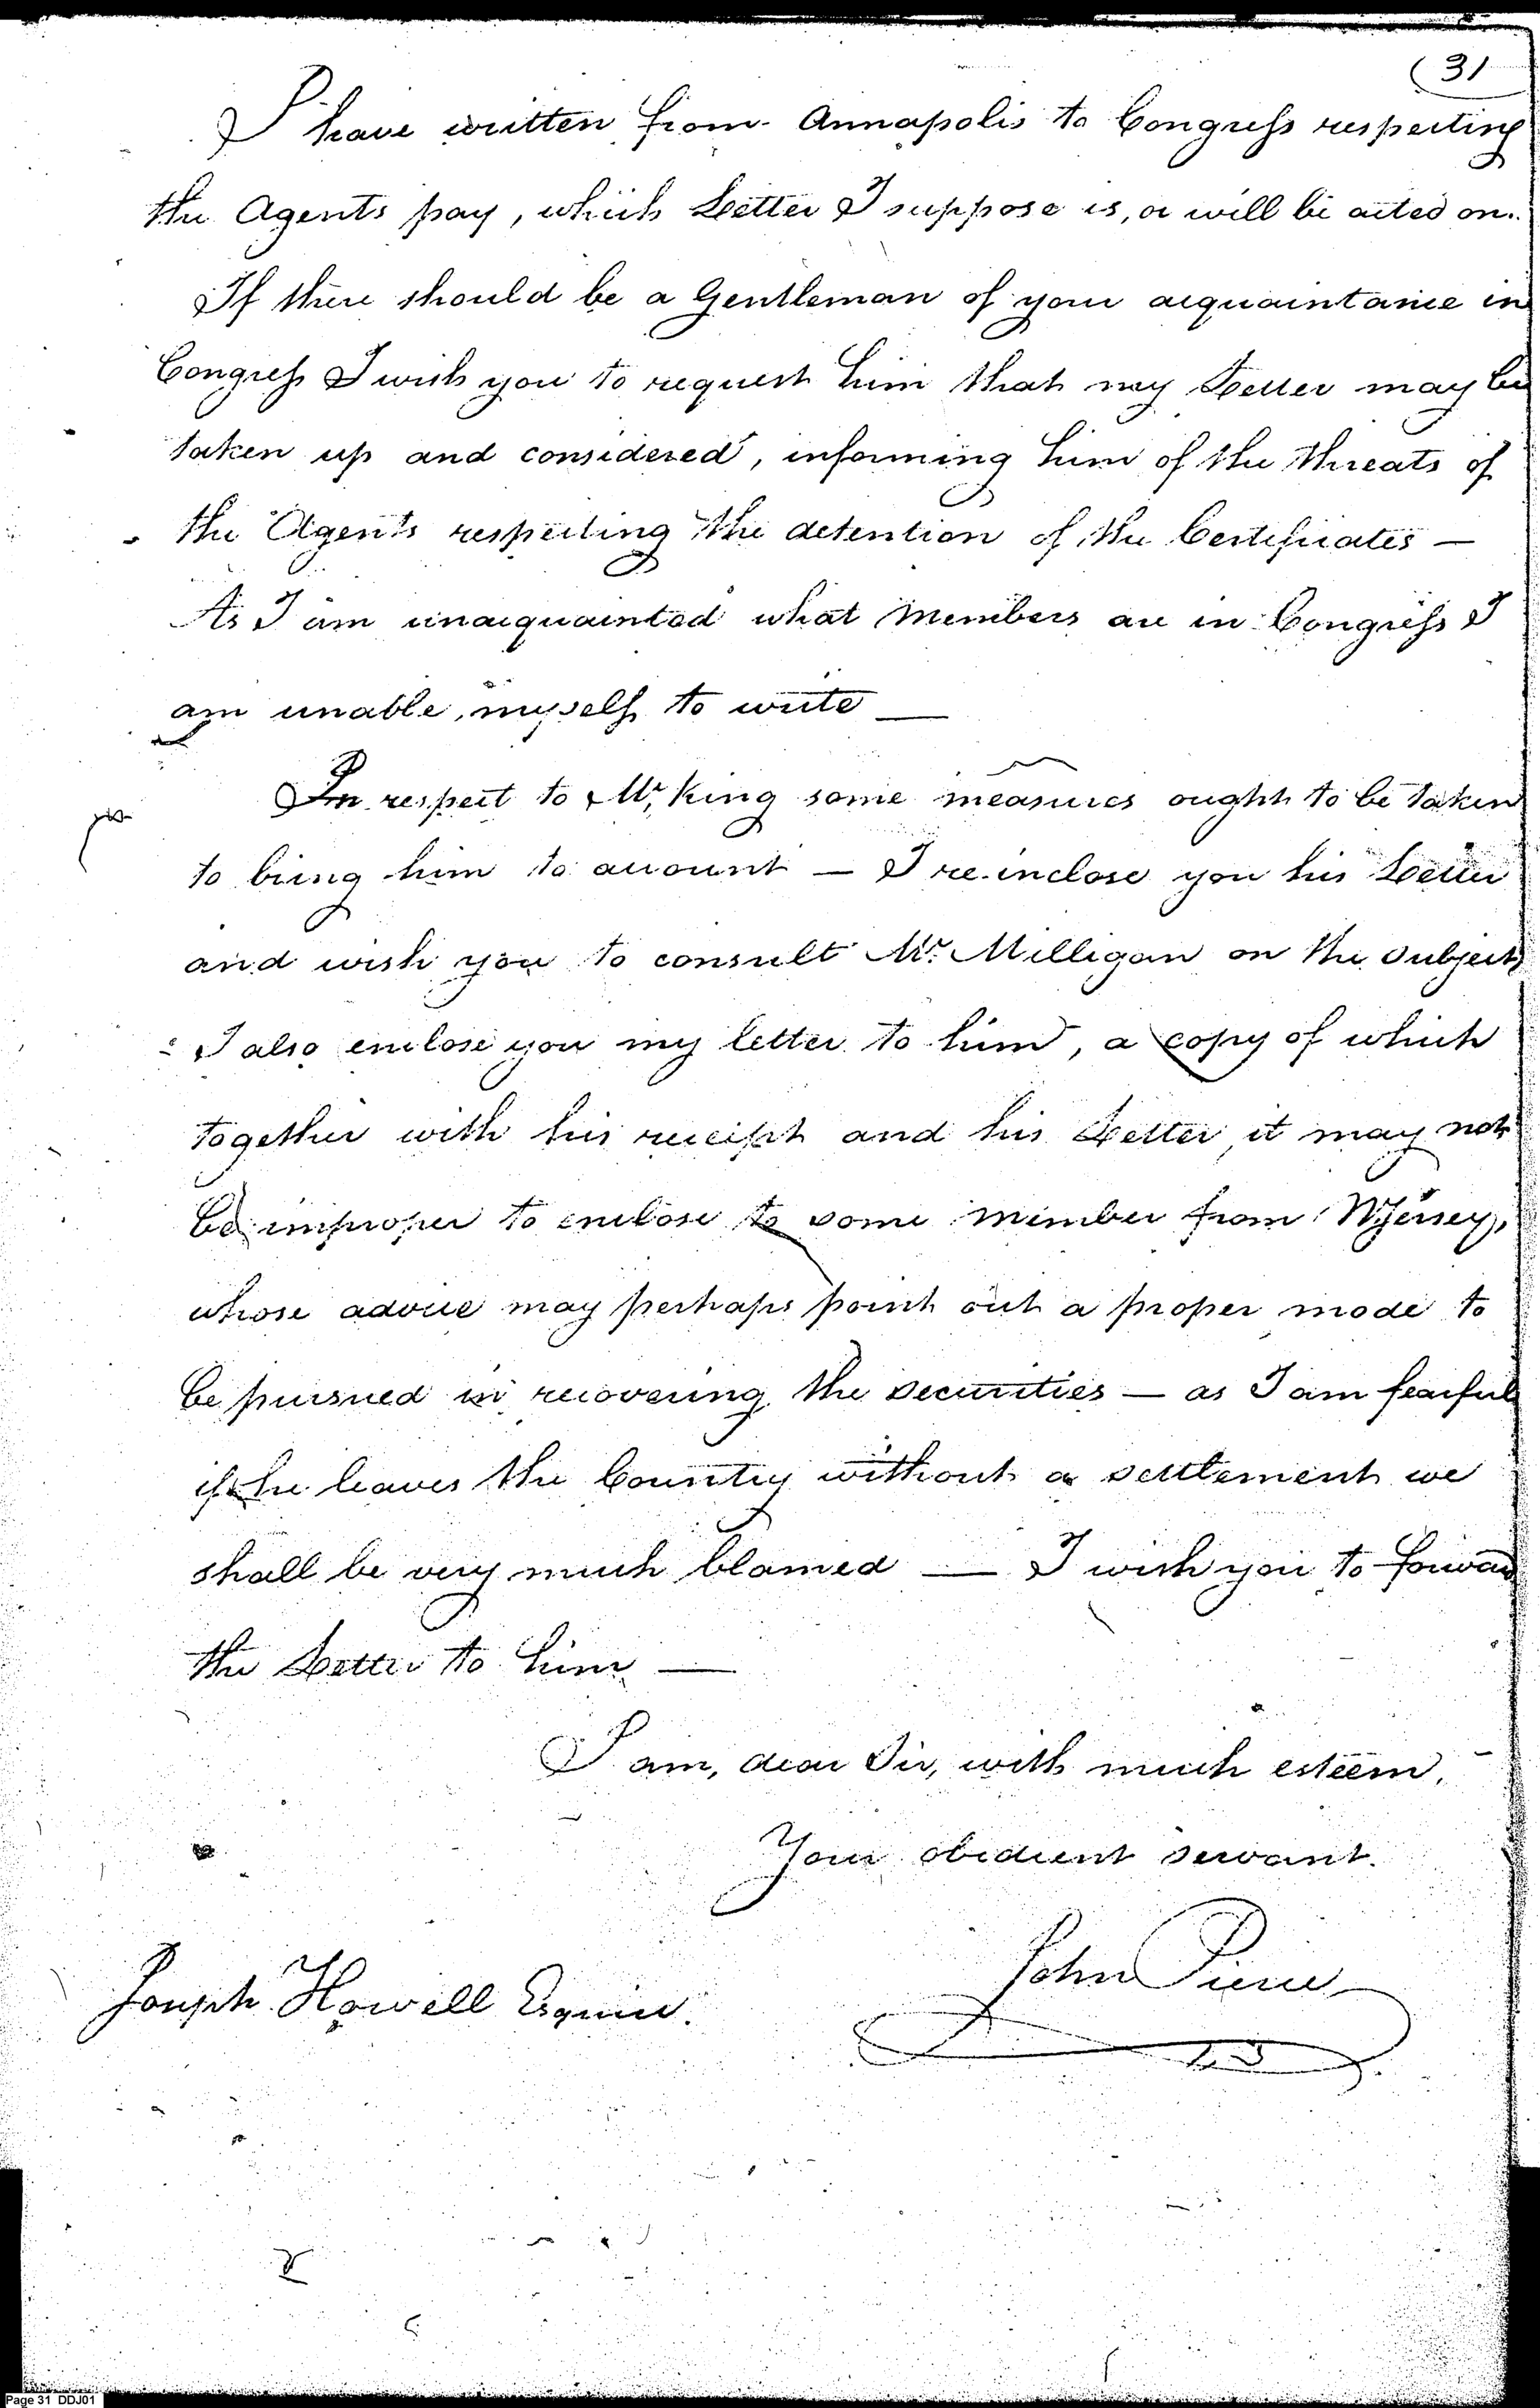 (31
I have written from Annapolis to Congress respecting
the Agents pay, which Letter I suppose is, or will be acted on.
If there should be a Gentleman of your acquaintance in
Congress I wish you to request him that my Letter may be
taken up and considered, informing him of the threats of
the Agents respecting the detention of the Certificates —
As I am unacquainted what Members are in Congress I
am unable, myself to write —
In respect to Mr. King some measures ought to be taken
to bring him to account — I re-inclose you his Letter
and wish you to consult Mr. Milligan on the subject
I also enclose you my letter to him, a copy of which
together with his receipt and his Letter, it may not
be improper to enclose to some member from N Jersey,
whose advice may perhaps point out a proper mode to
be pursued in recovering the securities — as I am fearful
if he leaves the Country without a settlement we
shall be very much blamed — I wish you to forward
the Letter to him —
I am, dear Sir, with much esteem,
Your obedient servant.
John Pierce
Joseph Howell Esquire.
Page 31 DDJ01